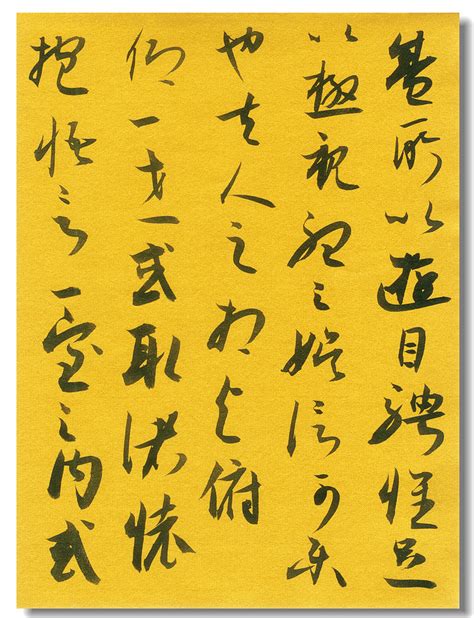 盛所以遊目騁懷足
以極視聽之娛信可樂
也夫人之相與俯
仰一世或取諸懷
抱悟言一室之內或